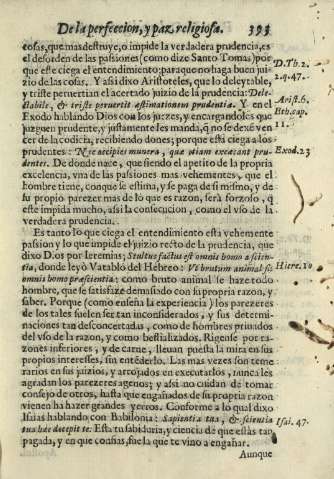 De la perfeccion, y paz religiosa. 393
cosas, que mas destruye, o impide la verdadera prudencia, es
el desorden de las passiones (como dize Santo Tomas) por
que este ciega el entendimiento: para que no haga buen jui-
zio de las cosas. Y assi dixo Aristoteles, que lo deleytable,
y triste peruertian el acertado juizio de la prudencia: Dele-
ctabile, & triste peruertit æstimationem prudentia. Y en el
Exodo hablando Dios con los juezes, y encargandoles que
juzguen prudente, y justamente les manda, q̃ no se dexẽ ven
cer de la codicia, recibiendo dones; porque esta ciega a los
prudentes: Ne accipies munera, quæ etiam excæcant pru-
denter. De donde nace, que siendo el apetito de la propria
excelencia, vna de las passiones mas vehementes, que el
hombre tiene, conque se estima, y se paga de si mismo, y de
su proprio parezer mas de lo que es razon, serà forzoso, q̃
este impida mucho, assi la consecucion, como el vso de la
verdadera prudencia.
Es tanto lo que ciega el entendimiento esta vehemente
passion y lo que impide el juizio recto de la prudencia, que
dixo Dios por Ieremias; Stultus factus est omnis homo a scien-
tia, donde leyò Vatablo del Hebreo: Vt brutum animal fit
omnis homo præ scientia: como bruto animal se haze todo
hombre, que se satisfaze demasiado con su propria razon, y
saber. Porque (como enseña la experiencia) los parezeres
de los tales suelen ser tan inconsiderados, y sus determi-
naciones tan desconcertadas, como de hombres priuados
del vso de la razon, y como bestializados. Rigense por ra-
zones inferiores, y de carne, lleuan puesta la mira en sus
propios interesses, sin entẽderlo. Las mas vezes son teme
rarios en sus juizios, y arrojados en executarlos, nunca les
agradan los parezeres agenos; y assi no cuidan de tomar
consejo de otros, hasta que engañados de su propria razon
vienen ha hazer grandes yerros. Conforme a lo qual dixo
Isaias hablando con Babilonia: Sapientia tua, & scientia
tua hæc decepit te: Esta tu sabiduria, y ciencia de que estàs tan
pagada, y en que confias, fue la que te vino a engañar.
Aunque
D.Th.2.
2.q.47.
Arist.6.
Eth.cap.
11.
Exod.23
Hiere.10
Isai.47.